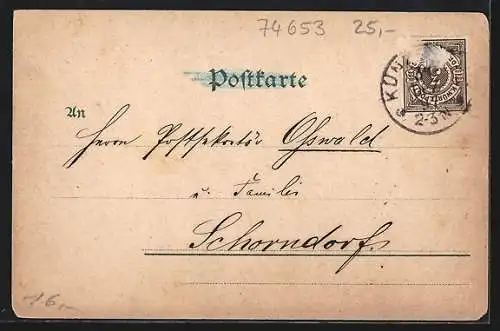 74653 25,-
Postkarte
KÜN
2-3 N
An
Herrn Postsekretär Osswald
u. Familie
Schorndorf.
16,-